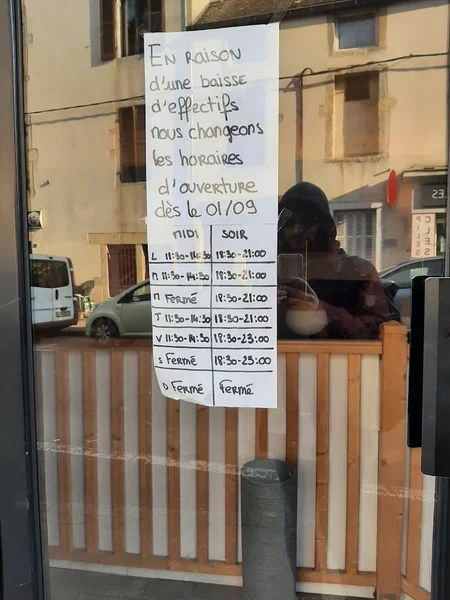 En raison
d'une baisse
d'effectifs
nous changeons
les horaires
d'ouverture
dès le 01/09
MIDI SOIR
L 11:30-14:30 18:30-21:00
M 11:30-14:30 18:30-21:00
M Fermé 18:30-21:00
J 11:30-14:30 18:30-21:00
V 11:30-14:30 18:30-23:00
S Fermé 18:30-23:00
D Fermé Fermé
CLES
PILES